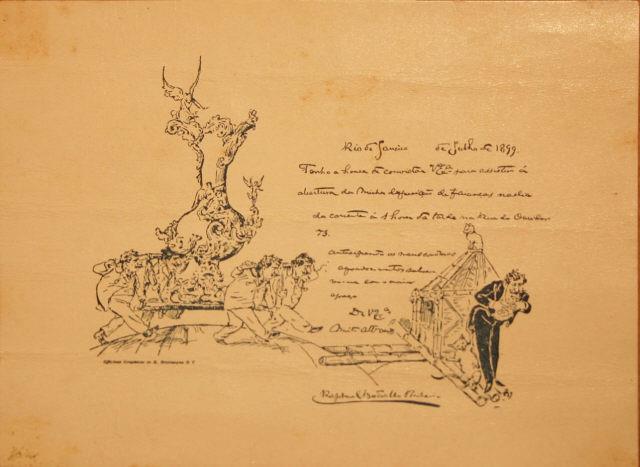 Rio de Janeiro de Julho de 1899.
Tenho a honra de convidar V.Ex.ª para assistir á
abertura da Minha Exposição de faianças no dia
do corrente á 1 hora da tarde na Rua do Ouvidor
73.
Antecipando os meus
agradecimentos
com o maior
apreço
De V.Ex.ª
Raphael Bordallo Pinheiro